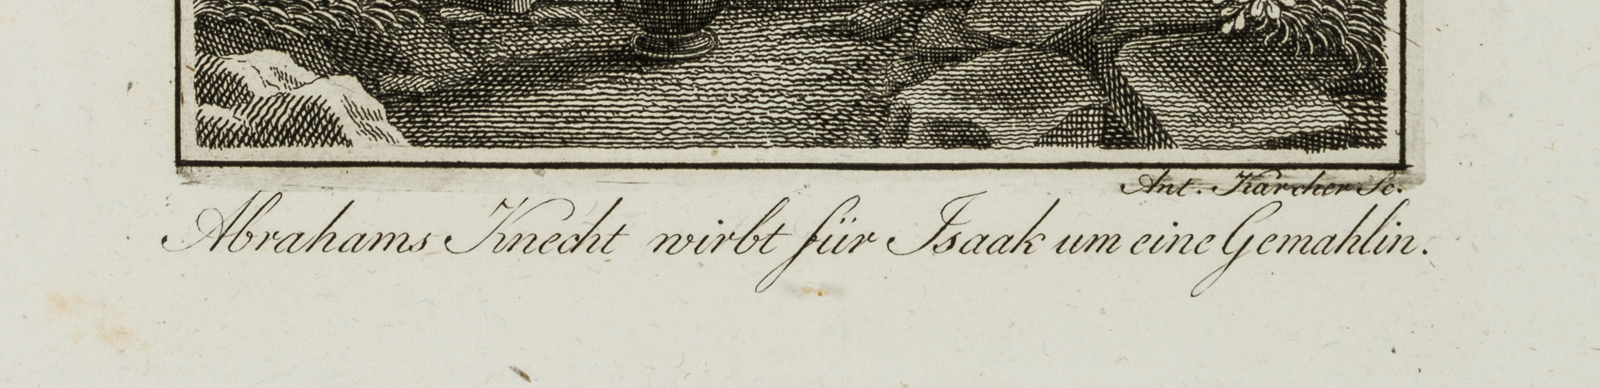 Ant. Karcher Sc.
Abrahams Knecht wirbt für Isaak um eine Gemahlin.